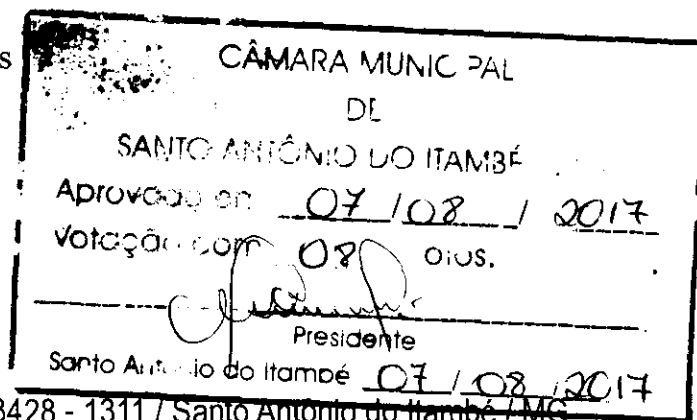 s
CÂMARA MUNICIPAL
DE
SANTO ANTÔNIO DO ITAMBÉ
Aprovado en 07 / 08 / 2017
Votação com 08 otos.
Presidente
Santo Antonio do Itambé 07 / 08 / 2017
3428 - 1311 / Santo Antônio do Itambé / MG